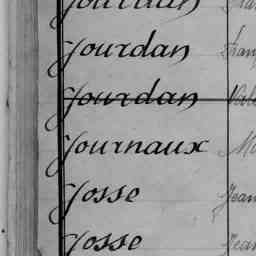 Jourdan
Jourdan
Jourdan
Journaux
Josse Jean
Josse Jean